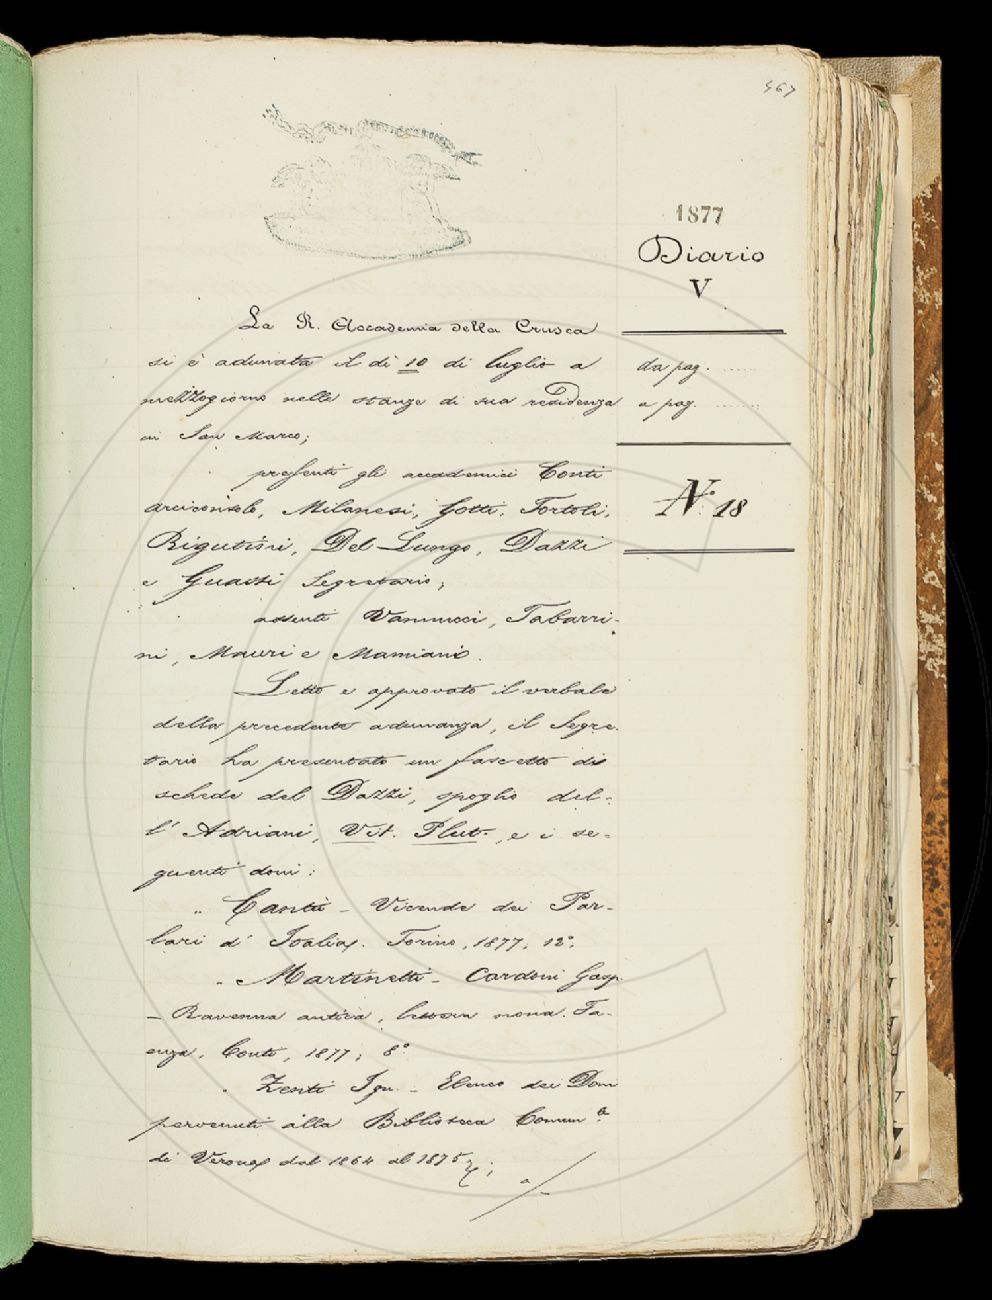 467
1877
Diario
V
La R. Accademia della Crusca
si è adunata il dì 10 di luglio a
mezzogiorno nelle stanze di sua residenza
in San Marco;
presenti gli accademici Conti
arciconsolo, Milanesi, Gotti, Tortoli,
Rigutini, Del Lungo, Dazzi
e Guasti Segretario;
assenti Vannucci, Tabarri-
ni, Mauri e Mamiani.
Letto e approvato il verbale
della precedente adunanza, il Segre-
tario ha presentato un fascetto di
schede del Dazzi, spoglio del-
l' Adriani, Vit. Plut., e i se-
guenti doni:
" Cantù - Vicende dei Par-
lari d' Italia. Torino, 1877, 12°.
" Martinetti - Cardoni Gasp.
- Ravenna antica, lettera nona. Fa-
enza, Conti, 1877, 8°
" Zenti Ign. - Elenco dei Doni
pervenuti alla Biblioteca Comun.e
di Verona dal 1864 al 1875;
a/-
da pag. ......
a pag. ......
N.° 18